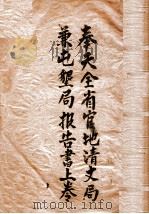 奉天全省官地清丈局
兼屯墾局报告書上卷